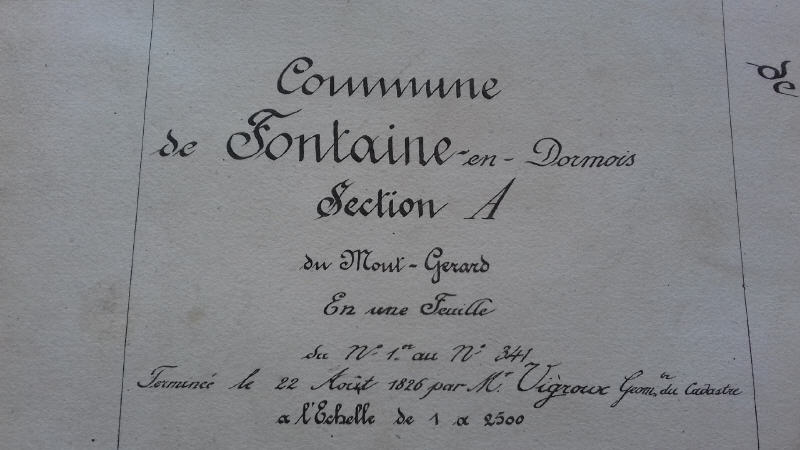 Commune
de Fontaine-en-Dormois
Section A
du Mont-Gerard
En une Feuille
du N° 1.er au N° 341
Terminée le 22 Août 1826 par M.r Vigroux Géom.tre du Cadastre
a l'Echelle de 1 a 2500
de